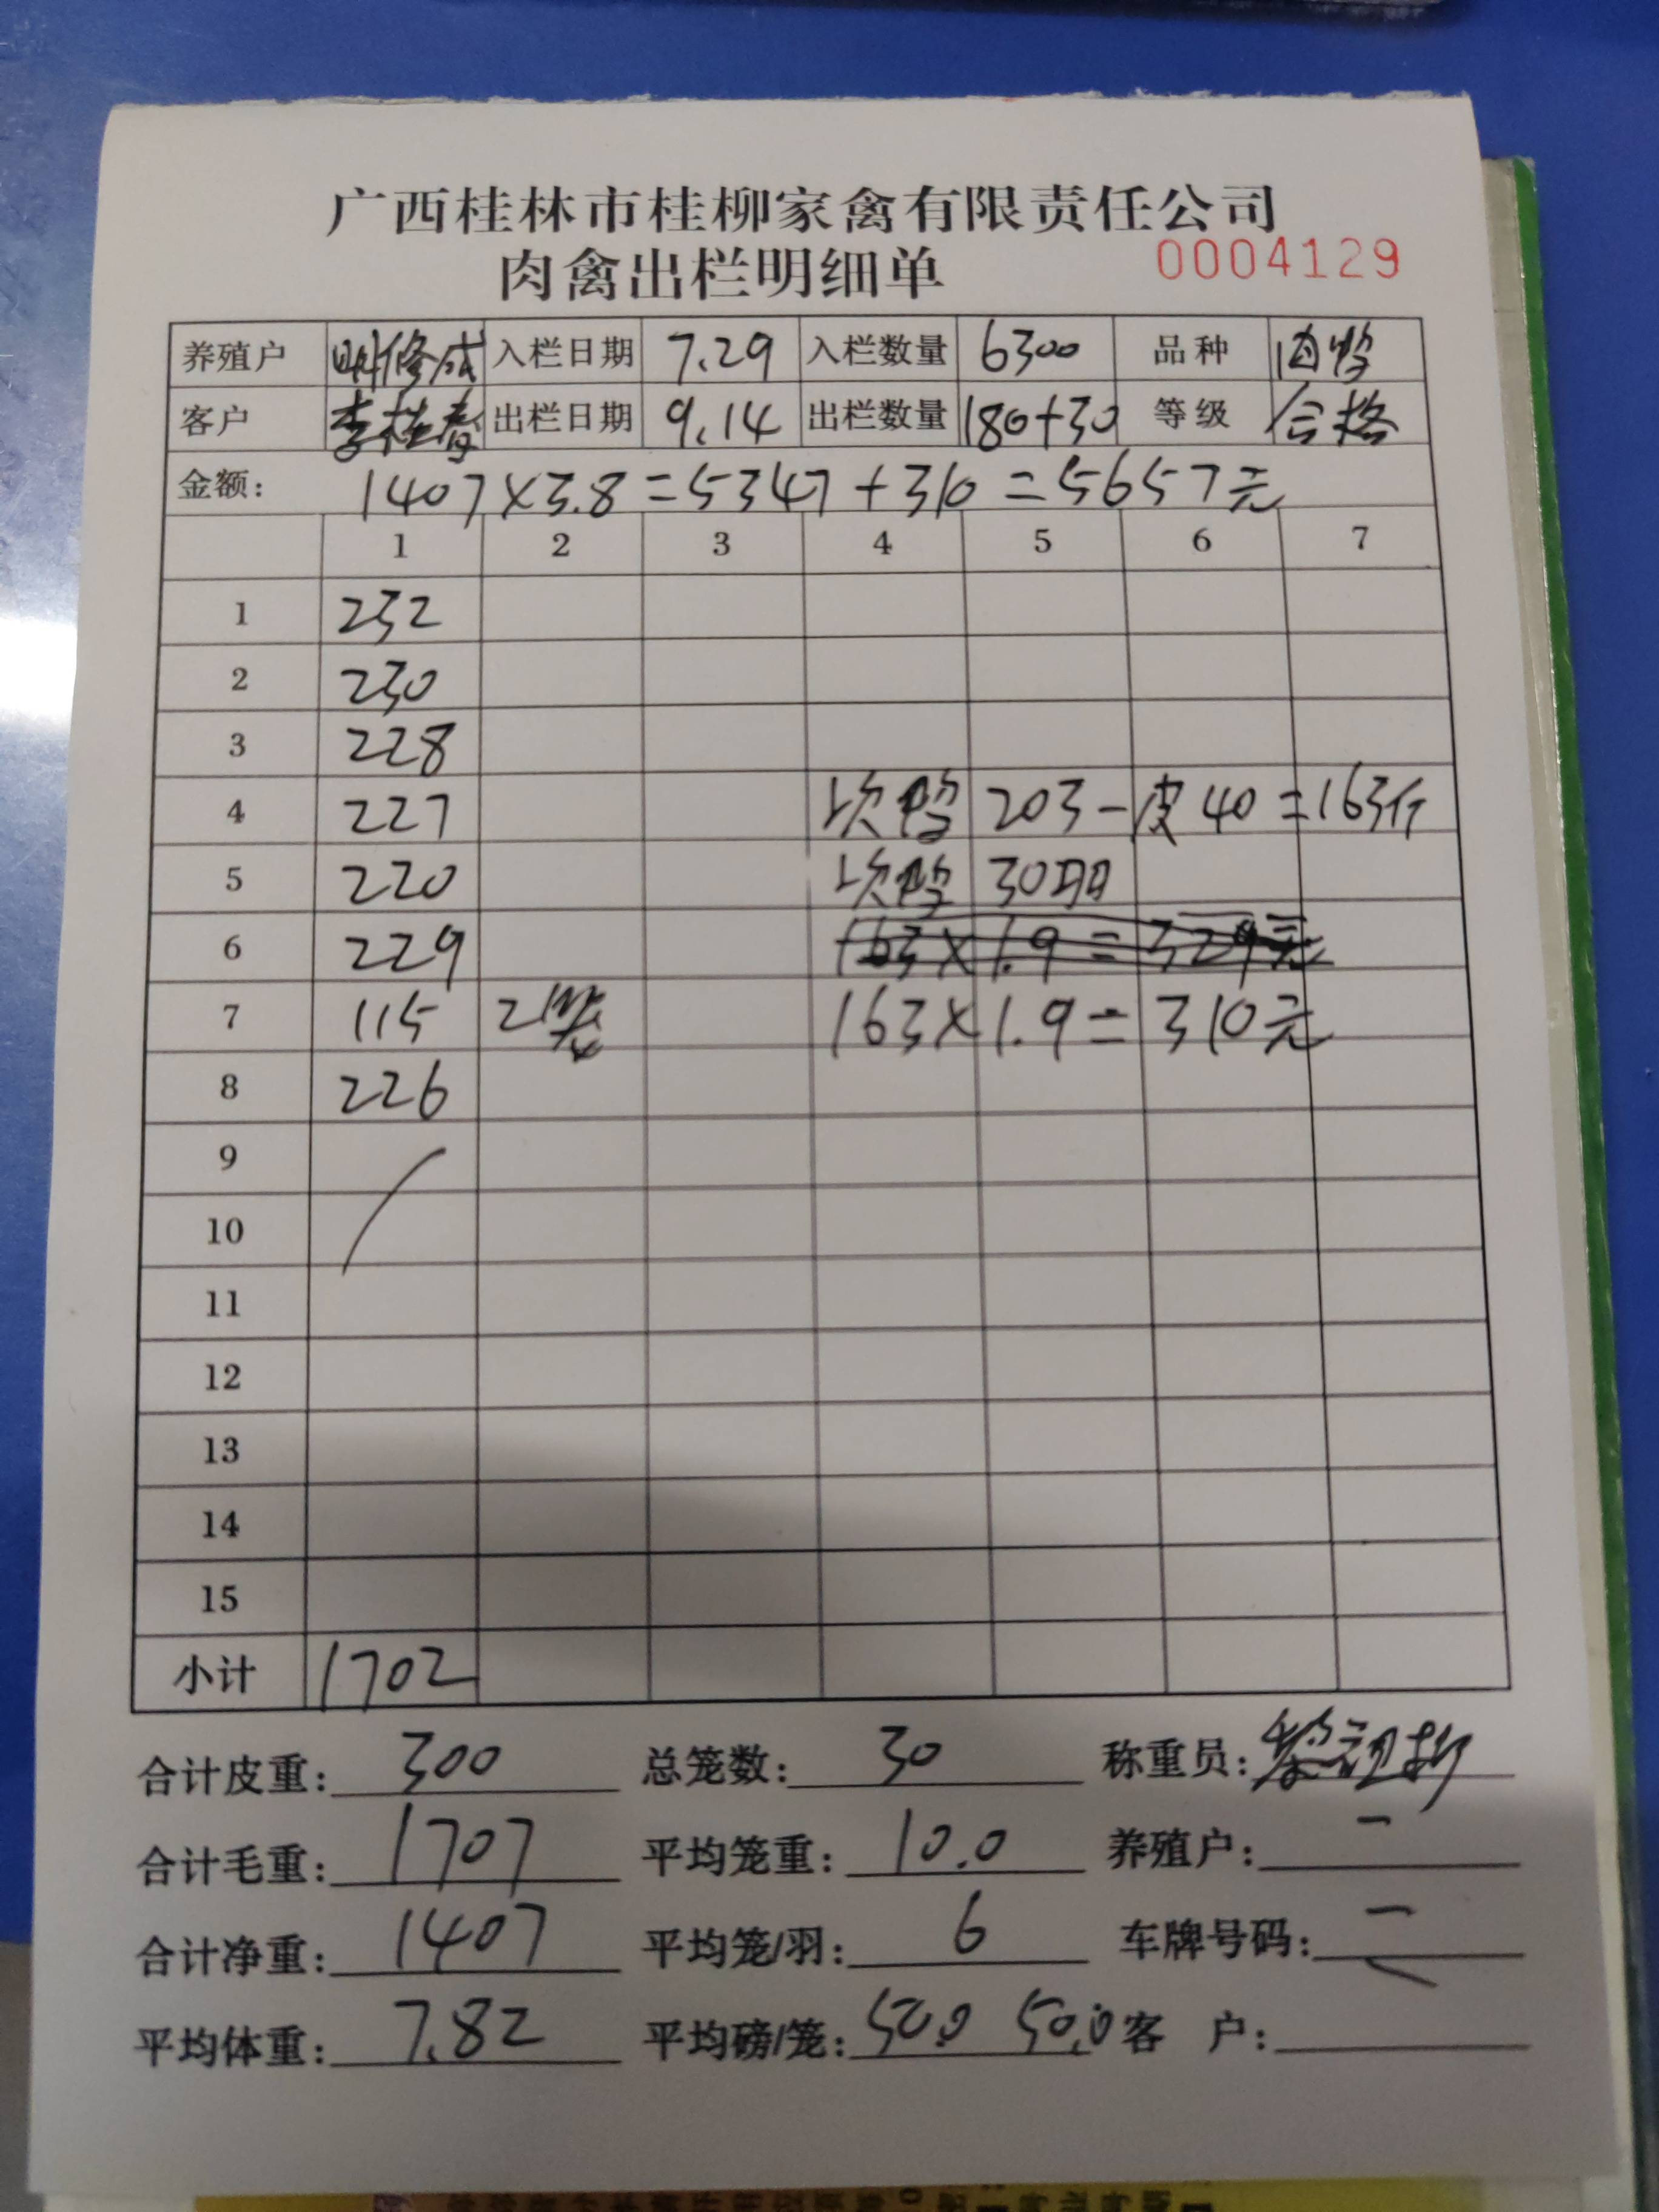 广西桂林市桂柳家禽有限责任公司
肉禽出栏明细单 0004129
养殖户 明修成 入栏日期 7.29 入栏数量 6300 品种 白鸭
客户 李桂春 出栏日期 9.14 出栏数量 180+30 等级 合格
金额: 1407×3.8=5347+310=5657元
1 2 3 4 5 6 7
1 232
2 230
3 228
4 227 次鸭 203-皮40=163斤
5 220 次鸭 30羽
6 229 163×1.9=329元
7 115 2笼 163×1.9=310元
8 226
9
10
11
12
13
14
15
小计 1702
合计皮重: 300 总笼数: 30 称重员: 黎
合计毛重: 1707 平均笼重: 10.0 养殖户: 一
合计净重: 1407 平均笼/羽: 6 车牌号码:
平均体重: 7.82 平均磅/笼: 50.0 50.0 客 户: